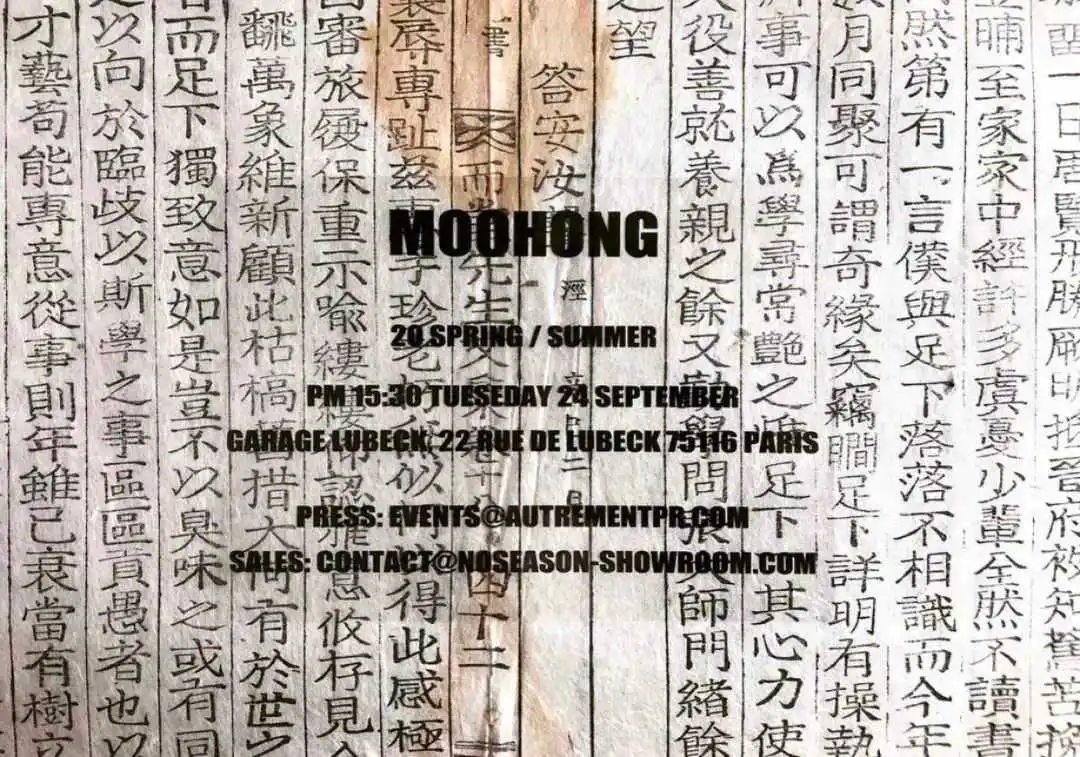 MOOHONG
20 SPRING / SUMMER
PM 15:30 TUESEDAY 24 SEPTEMBER
GARAGE LUBECK, 22 RUE DE LUBECK 75116 PARIS
PRESS: EVENTS@AUTREMENTPR.COM
SALES: CONTACT@NOSEASON-SHOWROOM.COM
晡至家家中經許多虞憂少輩全然不讀書
然第有一言僕與足下落落不相識而今年
月同聚可謂奇緣矣竊瞷足下詳明有操執
事可以爲學尋常艷之惟足下其心力使
役善就養親之餘又勤學問張大師門緒餘
之望
答安汝
涇
書
而先生文集四十二
辱專趾茲子珍得此感極
審旅履保重示喩縷縷息收存見
翻萬象維新顧此枯槁措大何有於世之
者而足下獨致意如是豈不以臭味之或有同
以向於臨歧以斯學之事區區貢愚者也以
才藝苟能專意從事則年雖已衰當有樹立